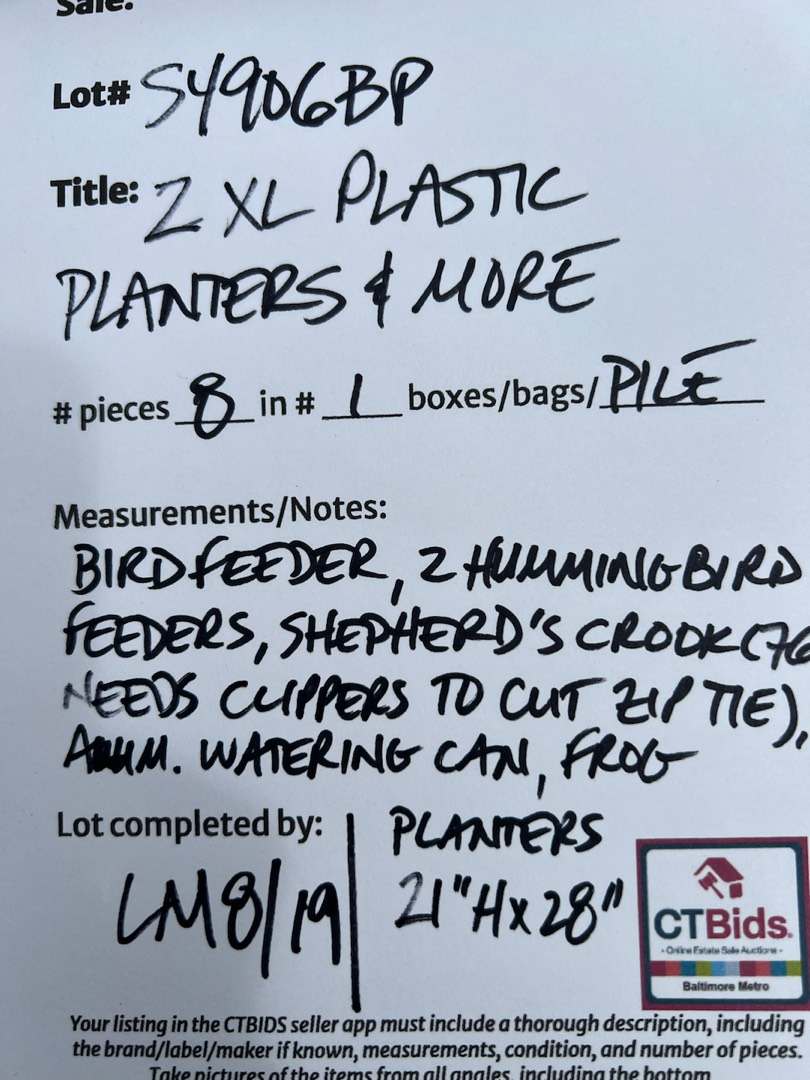 Sale:
Lot# S4906BP
Title: 2 XL PLASTIC
PLANTERS & MORE
# pieces 8 in # 1 boxes/bags/ PILE
Measurements/Notes:
BIRDFEEDER, 2 HUMMINGBIRD
FEEDERS, SHEPHERD'S CROOK (76
NEEDS CLIPPERS TO CUT ZIP TIE),
ALUM. WATERING CAN, FROG
Lot completed by:
LM 8/19
PLANTERS
21"H x 28"
CTBids.
- Online Estate Sale Auctions -
Baltimore Metro
Your listing in the CTBIDS seller app must include a thorough description, including
the brand/label/maker if known, measurements, condition, and number of pieces.
Take pictures of the items from all angles, including the bottom